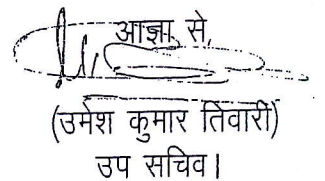 आज्ञा से,
(उमेश कुमार तिवारी)
उप सचिव।